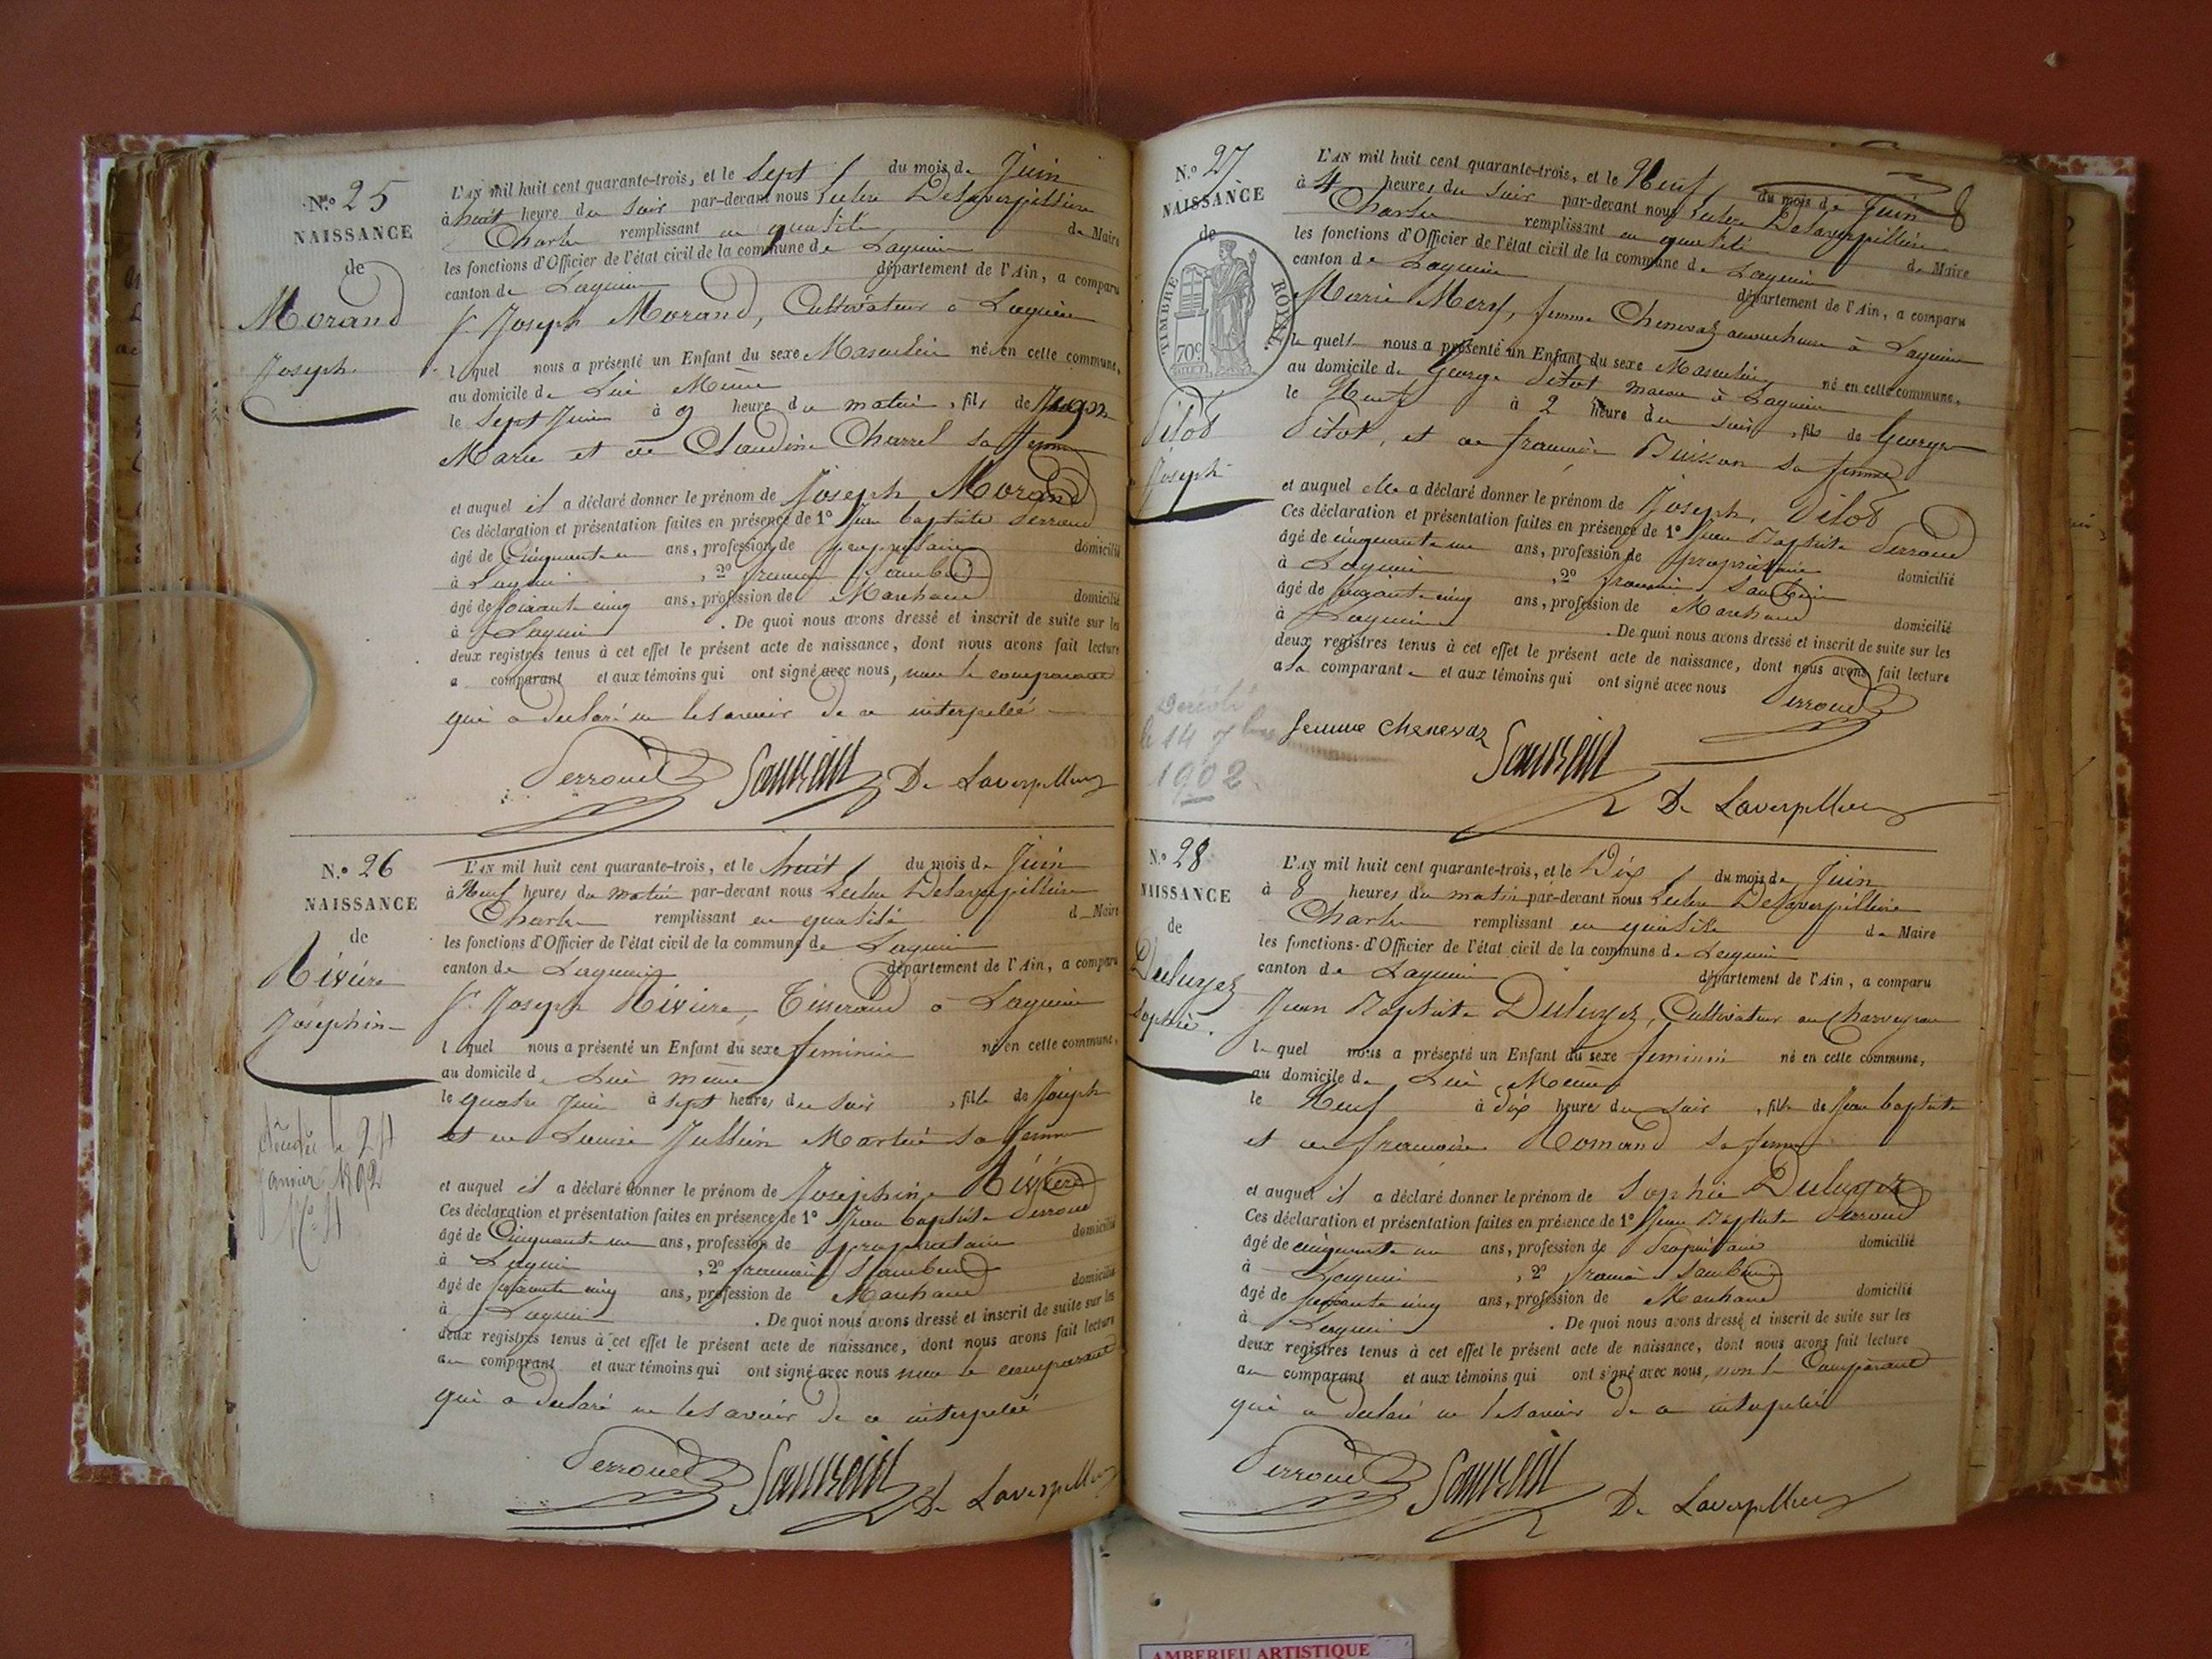 N.º 25
NAISSANCE
de
Morand
Joseph
L'AN mil huit cent quarante-trois, et le Sept du mois de Juin
à huit heure du Soir par-devant nous Leclerc Delaverpillière
Charles remplissant en qualité de Maire
les fonctions d'Officier de l'état civil de la commune de Lagnieu
canton de Lagnieu département de l'Ain, a comparu
Sr Joseph Morand, Cultivateur à Lagnieu
lequel nous a présenté un Enfant du sexe Masculin né en cette commune,
au domicile de Lui Même
le Sept Juin à 9 heure du matin, fils de
Marie et de Claudine Charrel sa femme
et auquel il a déclaré donner le prénom de Joseph Morand
Ces déclaration et présentation faites en présence de 1º Jean baptiste Perroud
âgé de Cinquante un ans, profession de propriétaire domicilié
à Lagnieu, 2º
âgé de Soixante cinq ans, profession de Marchand domicilié
à Lagnieu. De quoi nous avons dressé et inscrit de suite sur les
deux registres tenus à cet effet le présent acte de naissance, dont nous avons fait lecture
a comparant et aux témoins qui ont signé avec nous, non le comparant
qui a déclaré ne le savoir de ce interpellé
Perroud De Laverpilliere
N.º 26
NAISSANCE
de
Rivière
Joséphine
le 24
janvier
L'AN mil huit cent quarante-trois, et le huit du mois de Juin
à Neuf heures du matin par-devant nous Leclerc Delaverpillière
Charles remplissant en qualité de Maire
les fonctions d'Officier de l'état civil de la commune de Lagnieu
canton de Lagnieu département de l'Ain, a comparu
Sr Joseph Rivière, Tisserand à Lagnieu
lequel nous a présenté un Enfant du sexe féminin né en cette commune,
au domicile de Lui même
le quatre Juin à sept heures du soir, fille de Joseph
et de Louise Jullien Martin sa femme
et auquel il a déclaré donner le prénom de Joséphine Rivière
Ces déclaration et présentation faites en présence de 1º Jean baptiste Perroud
âgé de Cinquante un ans, profession de propriétaire domicilié
à Lagnieu, 2º
âgé de soixante cinq ans, profession de Marchand domicilié
à Lagnieu. De quoi nous avons dressé et inscrit de suite sur les
deux registres tenus à cet effet le présent acte de naissance, dont nous avons fait lecture
au comparant et aux témoins qui ont signé avec nous non le comparant
qui a déclaré ne le savoir de ce interpellé
Perroud De Laverpilliere
N.º 27
NAISSANCE
de
TIMBRE ROYAL
70c
Joseph
Décédé
le 14 9bre
1902
L'AN mil huit cent quarante-trois, et le Neuf du mois de Juin
à 4 heures du soir par-devant nous Leclerc Delaverpillière
Charles remplissant en qualité de Maire
les fonctions d'Officier de l'état civil de la commune de Lagnieu
canton de Lagnieu département de l'Ain, a comparu
Marie Mery, femme Chenevaz accoucheuse à Lagnieu
laquelle nous a présenté un Enfant du sexe Masculin né en cette commune,
au domicile de George maçon à Lagnieu
le Neuf à 2 heure du soir, fils de George
et de françoise Buisson sa femme
et auquel elle a déclaré donner le prénom de Joseph
Ces déclaration et présentation faites en présence de 1º Jean Baptiste Perroud
âgé de cinquante un ans, profession de propriétaire domicilié
à Lagnieu, 2º
âgé de soixante cinq ans, profession de Marchand domicilié
à Lagnieu. De quoi nous avons dressé et inscrit de suite sur les
deux registres tenus à cet effet le présent acte de naissance, dont nous avons fait lecture
a la comparante et aux témoins qui ont signé avec nous
Perroud
femme chenevaz
De Laverpilliere
N.º 28
NAISSANCE
de
Duluyez
Sophie.
L'AN mil huit cent quarante-trois, et le Dix du mois de Juin
à 8 heures du matin par-devant nous Leclerc Delaverpillière
Charles remplissant en qualité de Maire
les fonctions d'Officier de l'état civil de la commune de Lagnieu
canton de Lagnieu département de l'Ain, a comparu
Jean Baptiste Duluyez, Cultivateur au Charveyron
lequel nous a présenté un Enfant du sexe féminin né en cette commune,
au domicile de Lui Même
le Neuf à dix heures du soir, fille de Jean baptiste
et de françoise Romand sa femme
et auquel il a déclaré donner le prénom de Sophie Duluyez
Ces déclaration et présentation faites en présence de 1º Jean Baptiste Perroud
âgé de cinquante un ans, profession de Propriétaire domicilié
à Lagnieu, 2º
âgé de soixante cinq ans, profession de Marchand domicilié
à Lagnieu. De quoi nous avons dressé et inscrit de suite sur les
deux registres tenus à cet effet le présent acte de naissance, dont nous avons fait lecture
au comparant et aux témoins qui ont signé avec nous, non le Comparant
qui a déclaré ne le savoir de ce interpellé
Perroud De Laverpilliere
AMBERIEU ARTISTIQUE